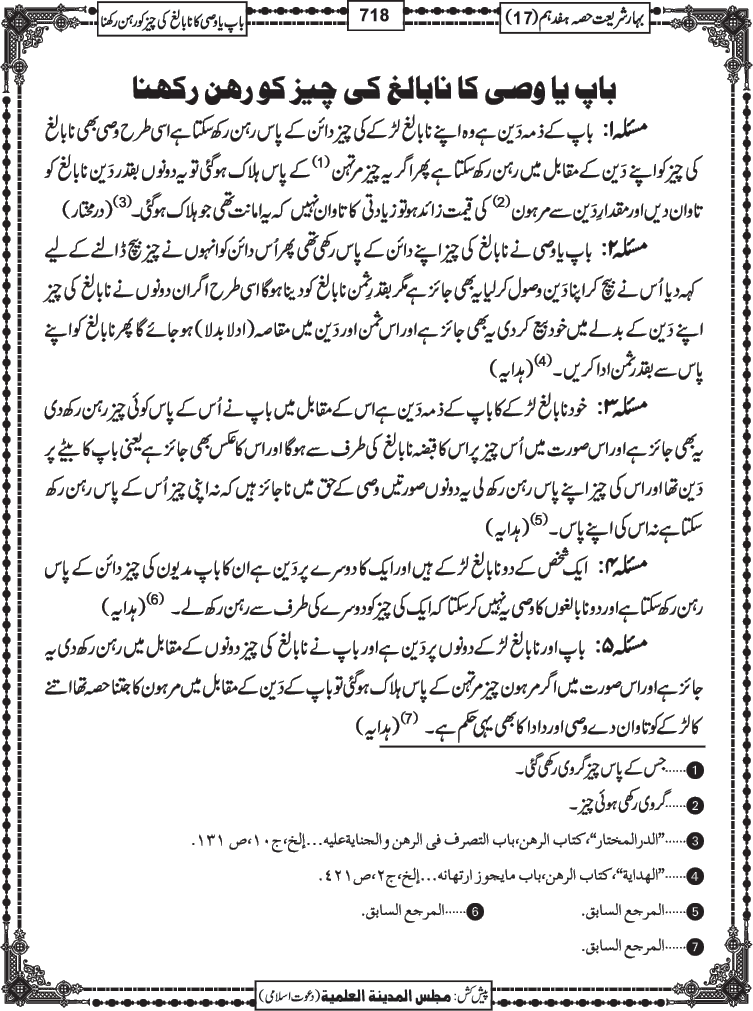 بہار شریعت حصہ ہفدہم (17)
718
باپ یا وصی کا نابالغ کی چیز کو رہن رکھنا
باپ یا وصی کا نابالغ کی چیز کو رهن رکهنا
مسئلہ ۱: باپ کے ذمہ دَین ہے وہ اپنے نابالغ لڑکے کی چیز دائن کے پاس رہن رکھ سکتا ہے اسی طرح وصی بھی نابالغ
کی چیز کو اپنے دَین کے مقابل میں رہن رکھ سکتا ہے پھر اگر یہ چیز مرتہن (1) کے پاس ہلاک ہوگئی تو یہ دونوں بقدر دَین نابالغ کو
تاوان دیں اور مقدارِ دَین سے مرہون (2) کی قیمت زائد ہو تو زیادتی کا تاوان نہیں کہ یہ امانت تھی جو ہلاک ہوگئی۔ (3) (درمختار)
مسئلہ ۲: باپ یا وصی نے نابالغ کی چیز اپنے دائن کے پاس رکھی تھی پھر اُس دائن کو انہوں نے چیز بیچ ڈالنے کے لیے
کہہ دیا اُس نے بیچ کر اپنا دَین وصول کرلیا یہ بھی جائز ہے مگر بقدرِ ثمن نابالغ کو دینا ہوگا اسی طرح اگر ان دونوں نے نابالغ کی چیز
اپنے دَین کے بدلے میں خود بیع کردی یہ بھی جائز ہے اور اس ثمن اور دَین میں مقاصہ (ادلا بدلا) ہو جائے گا پھر نابالغ کو اپنے
پاس سے بقدرِ ثمن ادا کریں۔ (4) (ہدایہ)
مسئلہ ۳: خود نابالغ لڑکے کا باپ کے ذمہ دَین ہے اس کے مقابل میں باپ نے اُس کے پاس کوئی چیز رہن رکھ دی
یہ بھی جائز ہے اور اس صورت میں اُس چیز پر اس کا قبضہ نابالغ کی طرف سے ہوگا اور اس کا عکس بھی جائز ہے یعنی باپ کا بیٹے پر
دَین تھا اور اس کی چیز اپنے پاس رہن رکھ لی یہ دونوں صورتیں وصی کے حق میں ناجائز ہیں کہ نہ اپنی چیز اُس کے پاس رہن رکھ
سکتا ہے نہ اس کی اپنے پاس۔ (5) (ہدایہ)
مسئلہ ۴: ایک شخص کے دو نابالغ لڑکے ہیں اور ایک کا دوسرے پر دَین ہے ان کا باپ مدیون کی چیز دائن کے پاس
رہن رکھ سکتا ہے اور دو نابالغوں کا وصی یہ نہیں کرسکتا کہ ایک کی چیز کو دوسرے کی طرف سے رہن رکھ لے۔ (6) (ہدایہ)
مسئلہ ۵: باپ اور نابالغ لڑکے دونوں پر دَین ہے اور باپ نے نابالغ کی چیز دونوں کے مقابل میں رہن رکھ دی یہ
جائز ہے اور اس صورت میں اگر مرہون چیز مرتہن کے پاس ہلاک ہوگئی تو باپ کے دَین کے مقابل میں مرہون کا جتنا حصہ تھا اتنے
کا لڑکے کو تاوان دے وصی اور دادا کا بھی یہی حکم ہے۔ (7) (ہدایہ)
1......جس کے پاس چیز گروی رکھی گئی۔
2......گروی رکھی ہوئی چیز۔
3......"الدرالمختار"، کتاب الرهن،باب التصرف فی الرهن والجنایة علیه...إلخ،ج۱۰،ص ۱۳۱.
4......"الهدایة"، کتاب الرهن،باب مایجوز ارتهانه...إلخ،ج۲،ص۴۲۱.
5......المرجع السابق.
6......المرجع السابق.
7......المرجع السابق.
پیش کش: مجلس المدینة العلمیة (دعوت اسلامی)